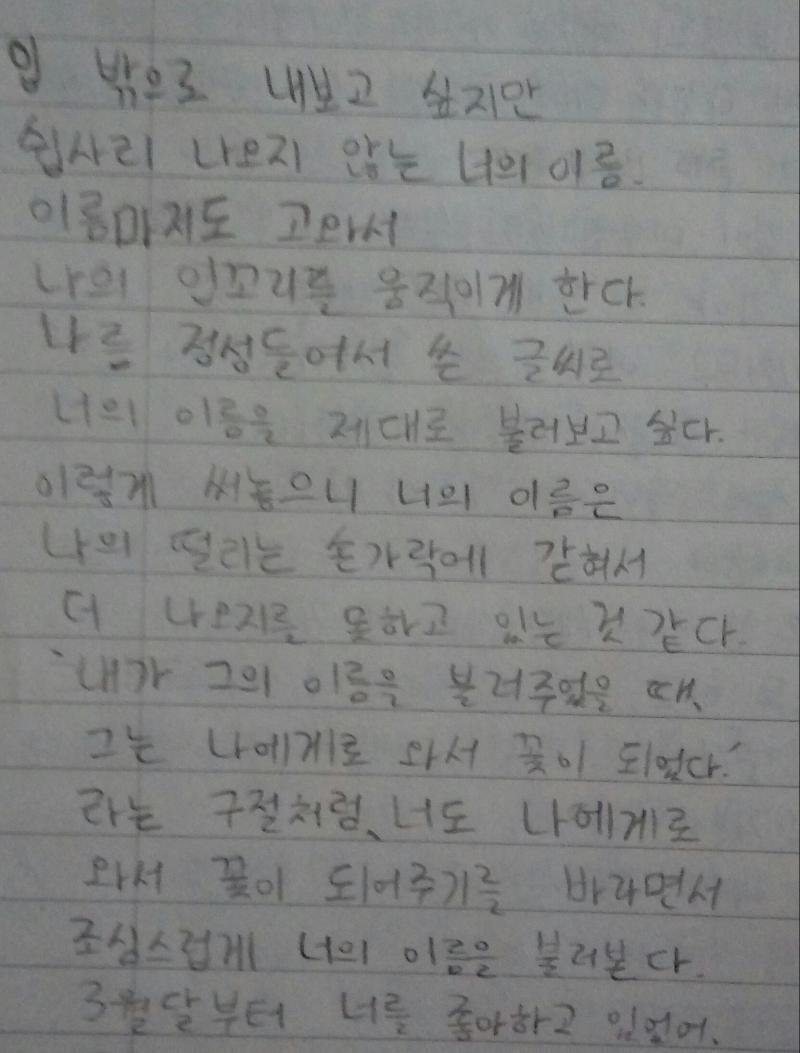 입 밖으로 내보고 싶지만
쉽사리 나오지 않는 너의 이름.
이름마저도 고와서
나의 입꼬리를 움직이게 한다.
나름 정성들여서 쓴 글씨로
너의 이름을 제대로 불러보고 싶다.
이렇게 써놓으니 너의 이름은
나의 떨리는 손가락에 갇혀서
더 나오지를 못하고 있는 것 같다.
'내가 그의 이름을 불러주었을 때,
그는 나에게로 와서 꽃이 되었다.'
라는 구절처럼, 너도 나에게로
와서 꽃이 되어주기를 바라면서
조심스럽게 너의 이름을 불러본다.
3월달부터 너를 좋아하고 있었어.